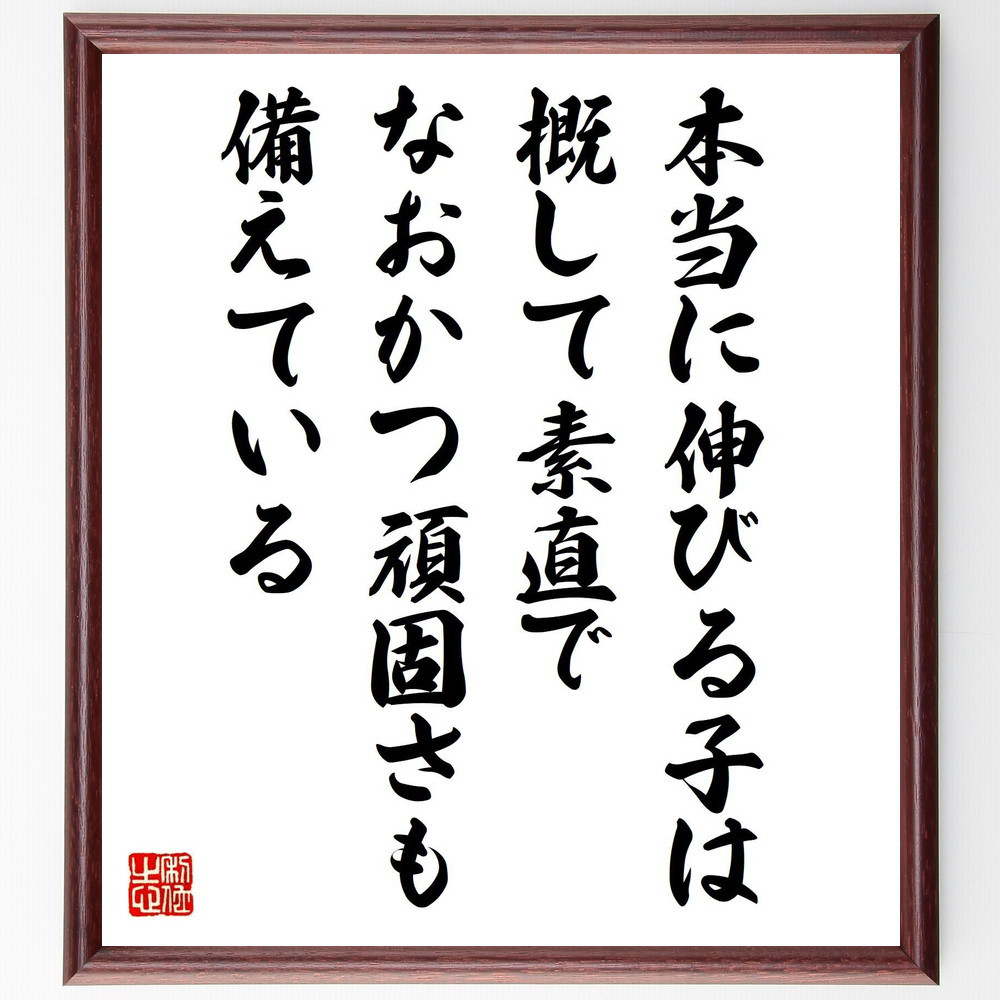 本当に伸びる子は
概して素直で
なおかつ頑固さも
備えている